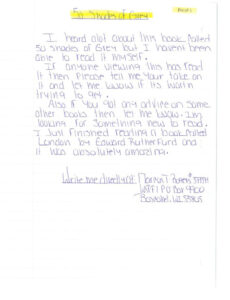 50 Shades of Grey
I heard alot about this book called
50 Shades of Grey but I havent been
able to read it myself.
If anyone viewing this has read
it then please tell me your take on
it and let me know if its worth
trying to get.
Also if you got any advice on some
other books then let me know. Im
looking for something new to read.
I just finished reading a book called
London by Edward Rutherfurd and
it was absolutely amazing.
Write me directly at:
PO Box 9900